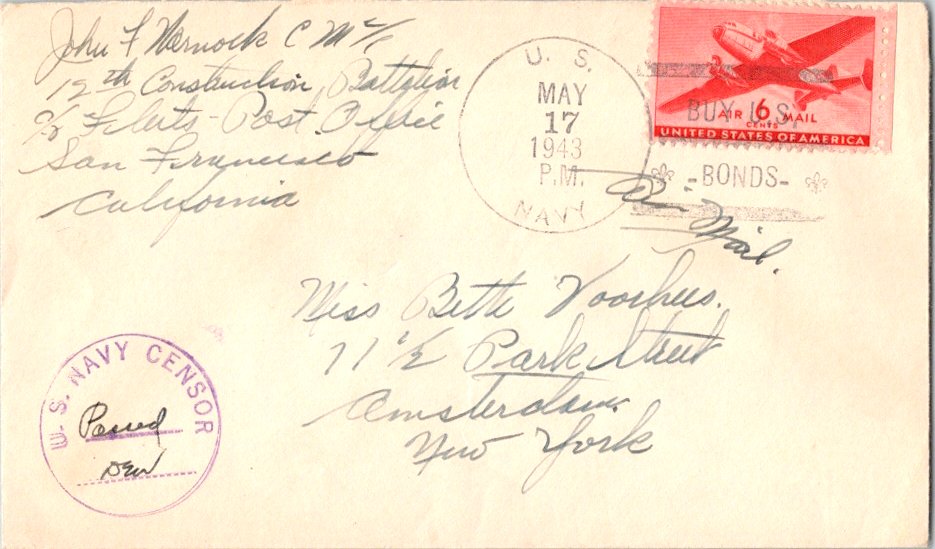 John F Wernock C M 2/c
12th Construction Battalion
c/o Fleets-Post Office
San Francisco
California
U. S.
MAY
17
1943
P.M.
NAVY
BUY U.S.
-BONDS-
AIR 6 MAIL
CENTS
UNITED STATES OF AMERICA
Air Mail.
Miss Bette Voorhees.
11½ Park Street
Amsterdam
New York
U. S. NAVY CENSOR
Passed
DEW